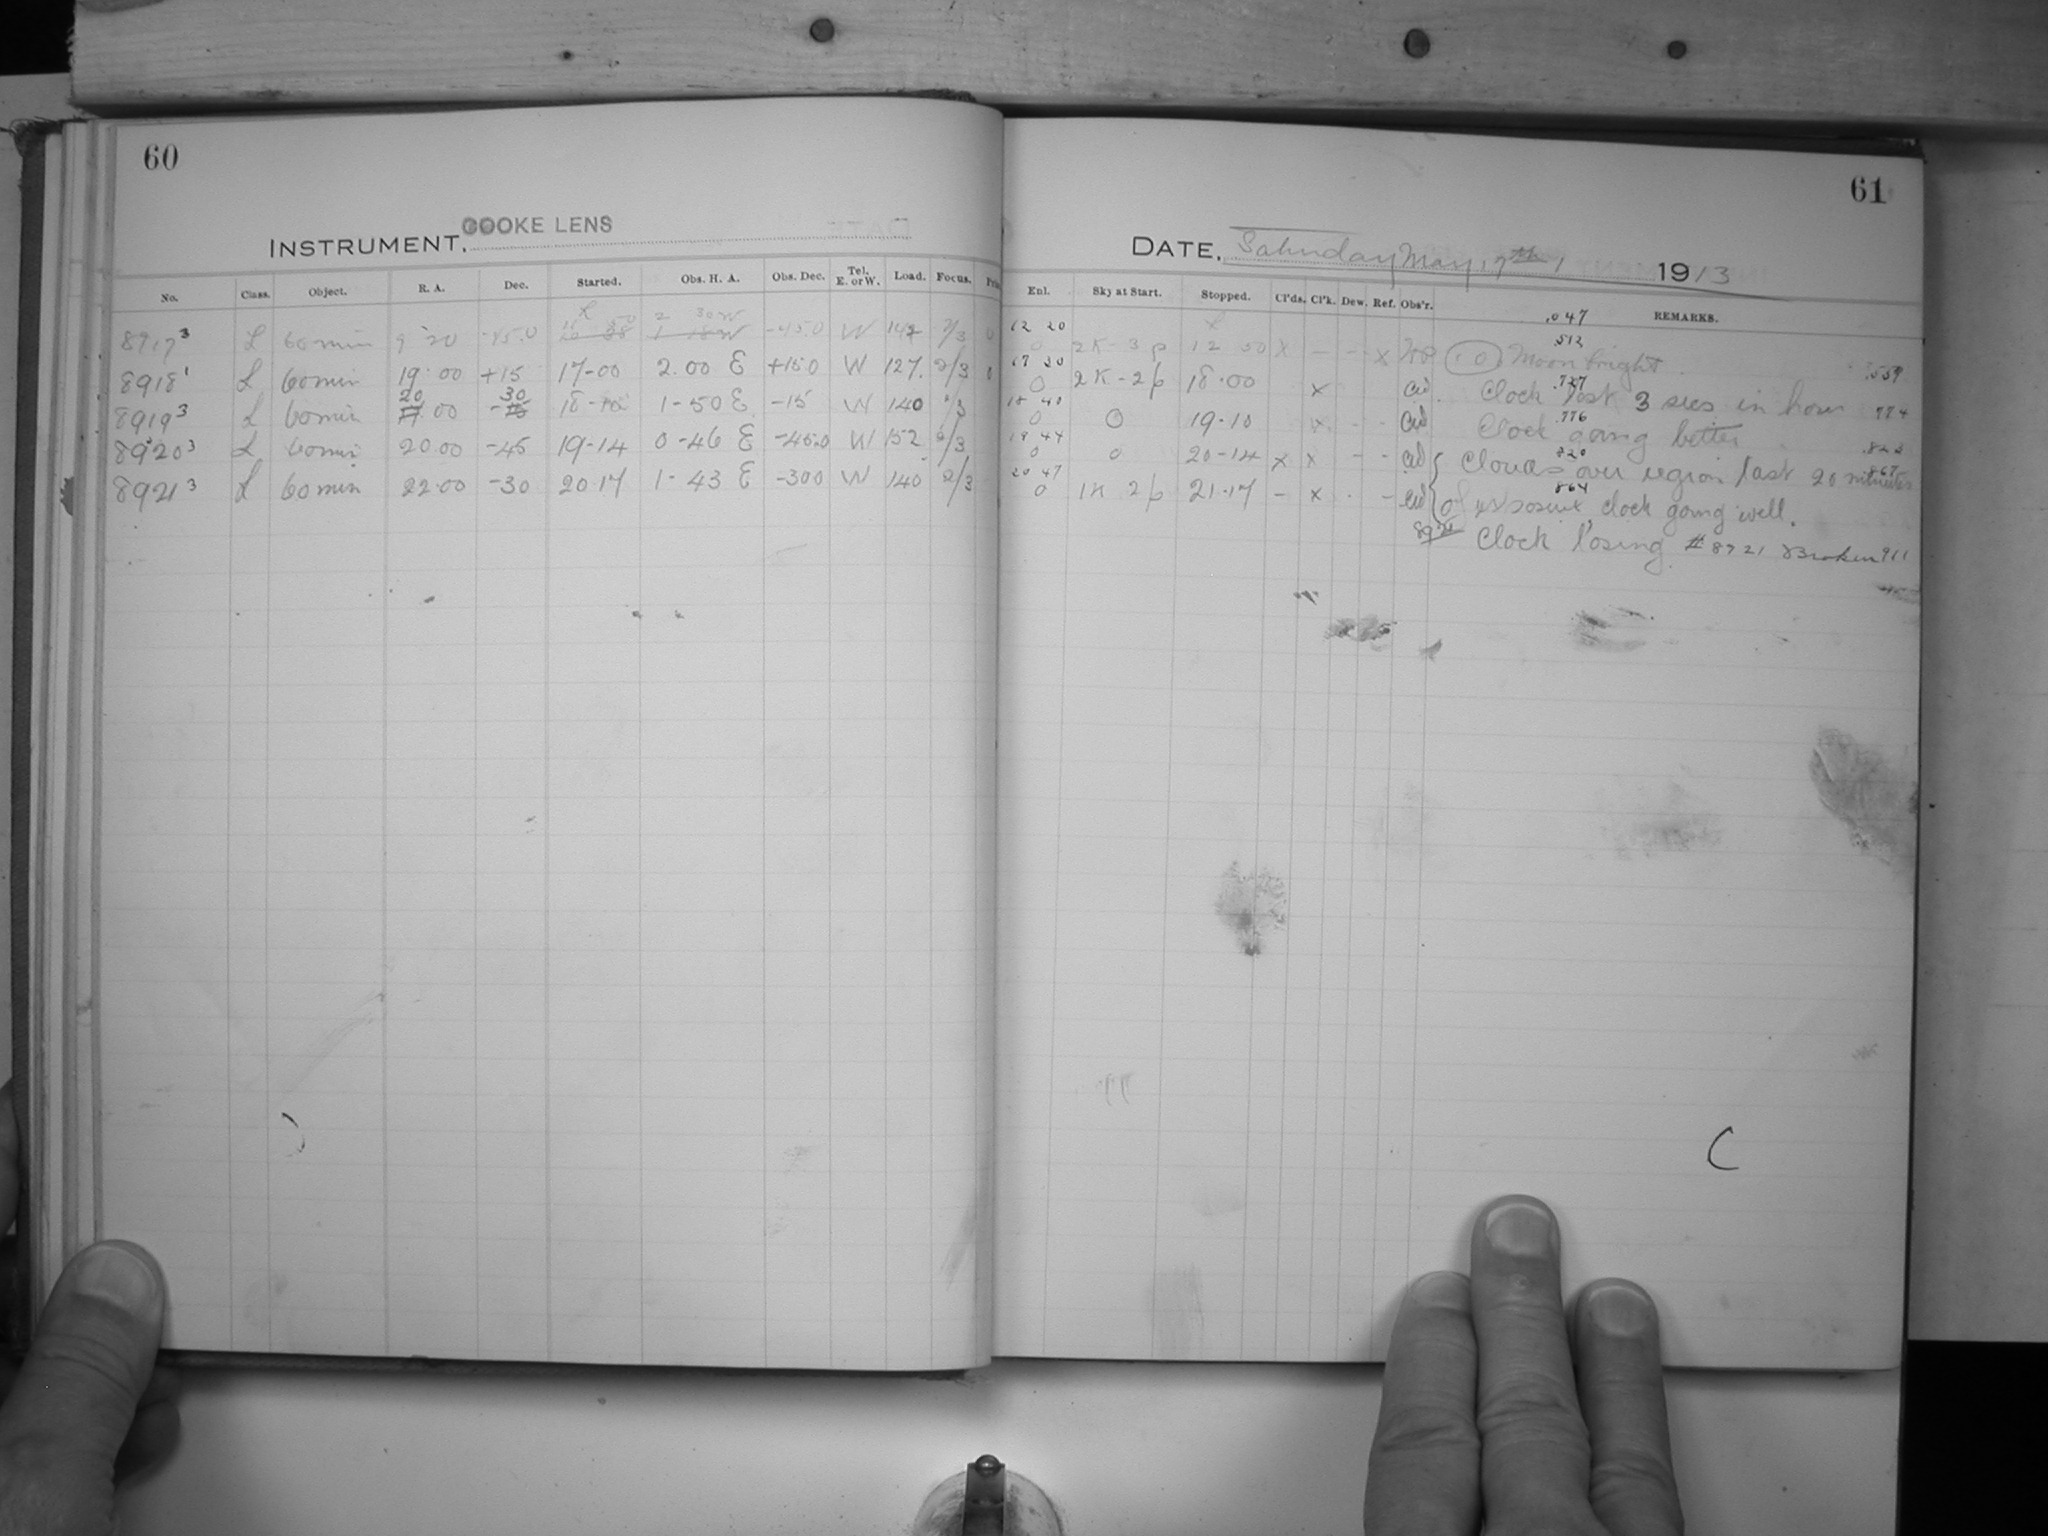 60
INSTRUMENT, COOKE LENS
No. Class. Object. R. A. Dec. Started. Obs. H. A. Obs. Dec. Tel. E. or W. Load. Focus.
8917 3 L 60 min 9 20 -45.0 2 30 W -45.0 W 2/3
8918 1 L 60 min 19.00 +15 17-00 2.00 E +15.0 W 127. 2/3
8919 3 L 60 min 20 .00 -30 1-50 E -15 W 140 2/3
8920 3 L 60 min 20.00 -45 19-14 0-46 E -45.0 W 152 2/3
8921 3 L 60 min 22.00 -30 20 17 1-43 E -300 W 140 2/3
61
DATE, Saturday May, 17th, 1913
Enl. Sky at Start. Stopped. Cl'ds. Cl'k. Dew. Ref. Obs'r. .047 REMARKS.
12 20 .512
0 2K-3p 12 50 X - - X (10) Moon bright .559
17 30 .727
0 2K-2p 18.00 x Clock lost 3 secs in hour 774
18 40 .776
0 0 19-10 x - - Clock going better .823
19 44 .820
0 0 20-14 x x - - Clouds over region last 20 minutes .867
20 47 .864
0 1K 2p 21.17 - x . - of exposure, clock going well.
8921 Clock losing # 8921 Broken 911
C